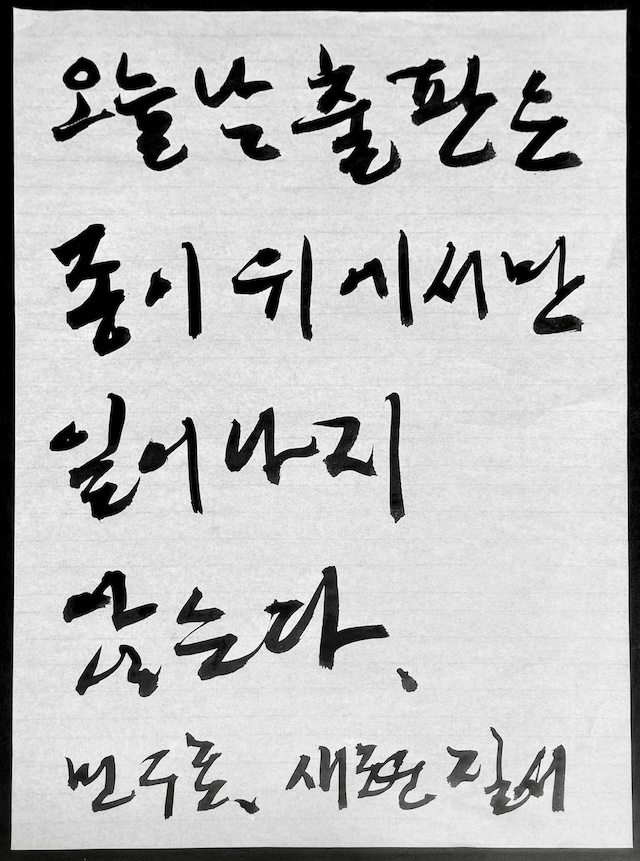 오늘날 출판은
종이 위에서만
일어나지
않는다.
민주홍, 새로운 질서